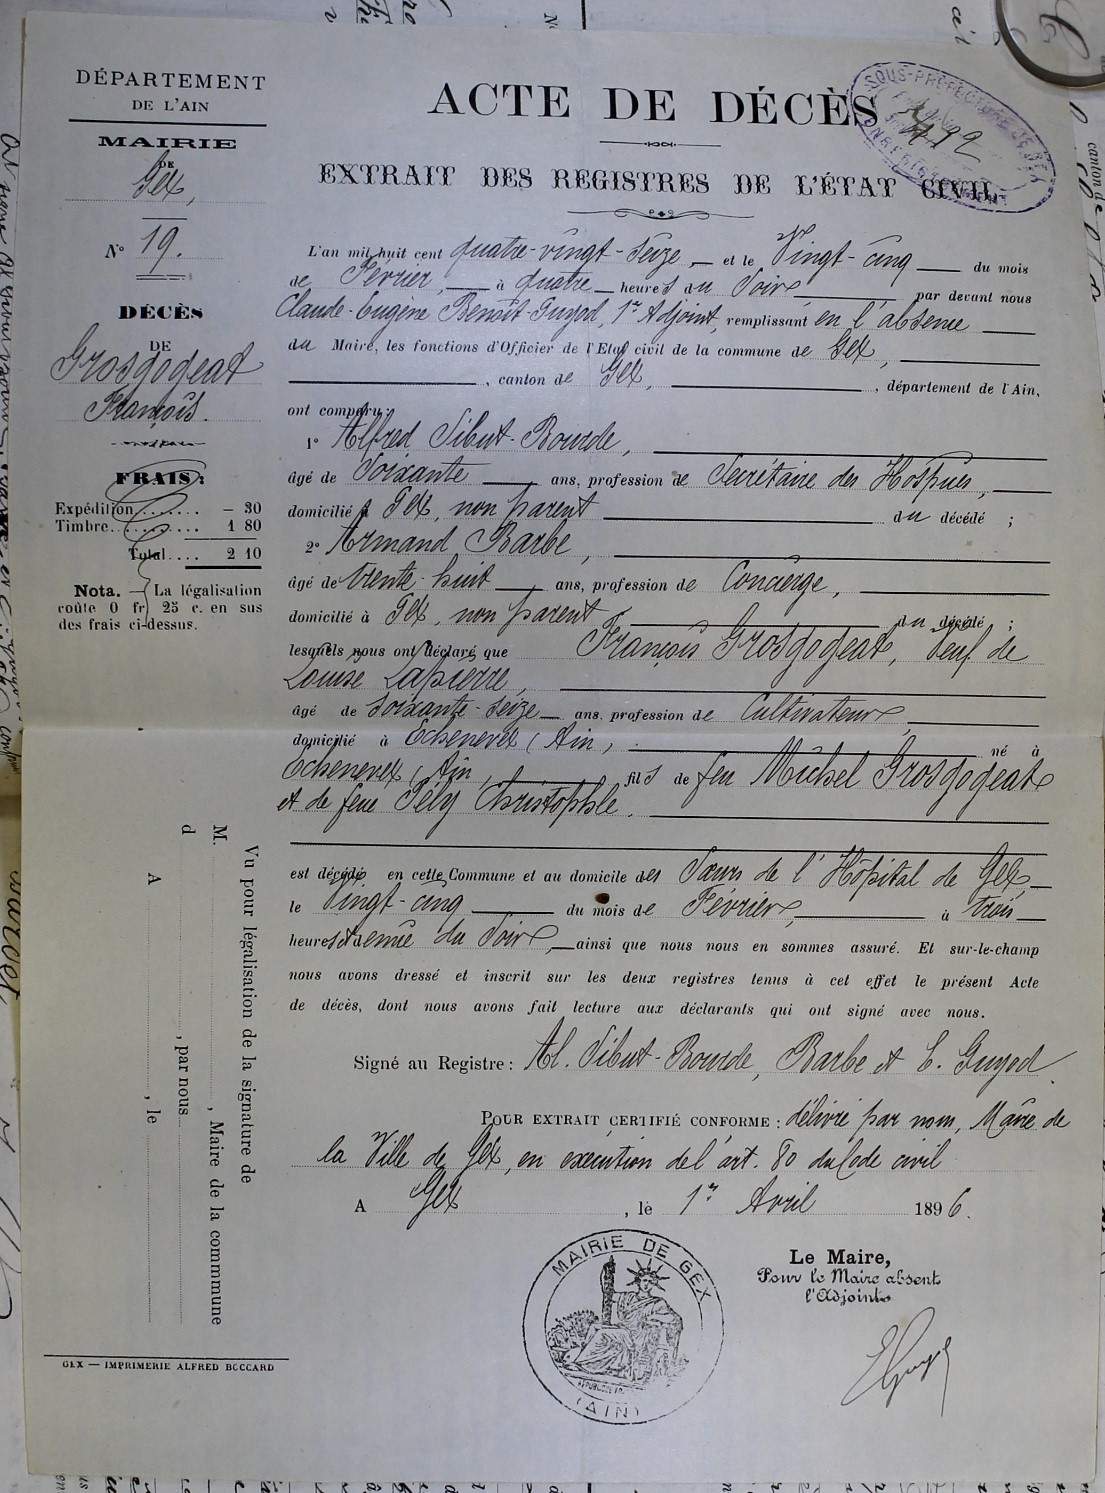 DÉPARTEMENT
DE L'AIN
MAIRIE
DE
Gex,
N° 19.
DÉCÈS
DE
Grosgogeat
François.
FRAIS:
Expédition........ — 30
Timbre........... 1 80
Total.... 2 10
Nota. — La légalisation
coûte 0 fr 25 c. en sus
des frais ci-dessus.
ACTE DE DÉCÈS
SOUS-PRÉFECTURE DE GEX
EXTRAIT DES REGISTRES DE L'ÉTAT CIVIL
L'an mil huit cent quatre-vingt-seize, — et le Vingt-cinq — du mois
de Février, — à quatre — heures du Soir — par devant nous
Claude-Eugène Benoît-Guyod, 1er Adjoint, remplissant en l'absence —
du Maire, les fonctions d'Officier de l'Etat civil de la commune de Gex,
, canton de Gex, , département de l'Ain,
ont comparu:
1° Alfred Sibut-Bourde,
âgé de Soixante — ans, profession de Secrétaire des Hospices,
domicilié à Gex, non parent du décédé ;
2° Armand Barbe,
âgé de trente-huit — ans, profession de Concierge,
domicilié à Gex, non parent du décédé ;
lesquels nous ont déclaré que François Grosgogeat, Veuf de
Louise Lapierre,
âgé de soixante-seize — ans, profession de Cultivateur,
domicilié à Echenevex (Ain, né à
Echenevex (Ain, fils de feu Michel Grosgogeat
et de feue Fély Christophle.
est décédé en cette Commune et au domicile des Sœurs de l'Hôpital de Gex,
le Vingt-cinq — du mois de Février, — à trois —
heures et demie du Soir, — ainsi que nous nous en sommes assuré. Et sur-le-champ
nous avons dressé et inscrit sur les deux registres tenus à cet effet le présent Acte
de décès, dont nous avons fait lecture aux déclarants qui ont signé avec nous.
Signé au Registre: Al. Sibut-Bourde, Barbe et E. Guyod.
POUR EXTRAIT CERTIFIÉ CONFORME: délivré par nous, Maire de
la Ville de Gex, en exécution de l'art. 80 du Code civil
A Gex, le 1er Avril 1896.
Le Maire,
Pour le Maire absent
l'Adjoint
EGuyod
MAIRIE DE GEX
(AIN)
Vu pour légalisation de la signature de
M. , Maire de la commmune
d , par nous
A , le
GEX — IMPRIMERIE ALFRED BOCCARD